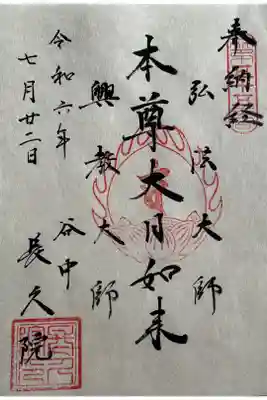 奉納経
弘法大師
本尊大日如来
興教大師
谷中
長久院
令和六年
七月廿二日